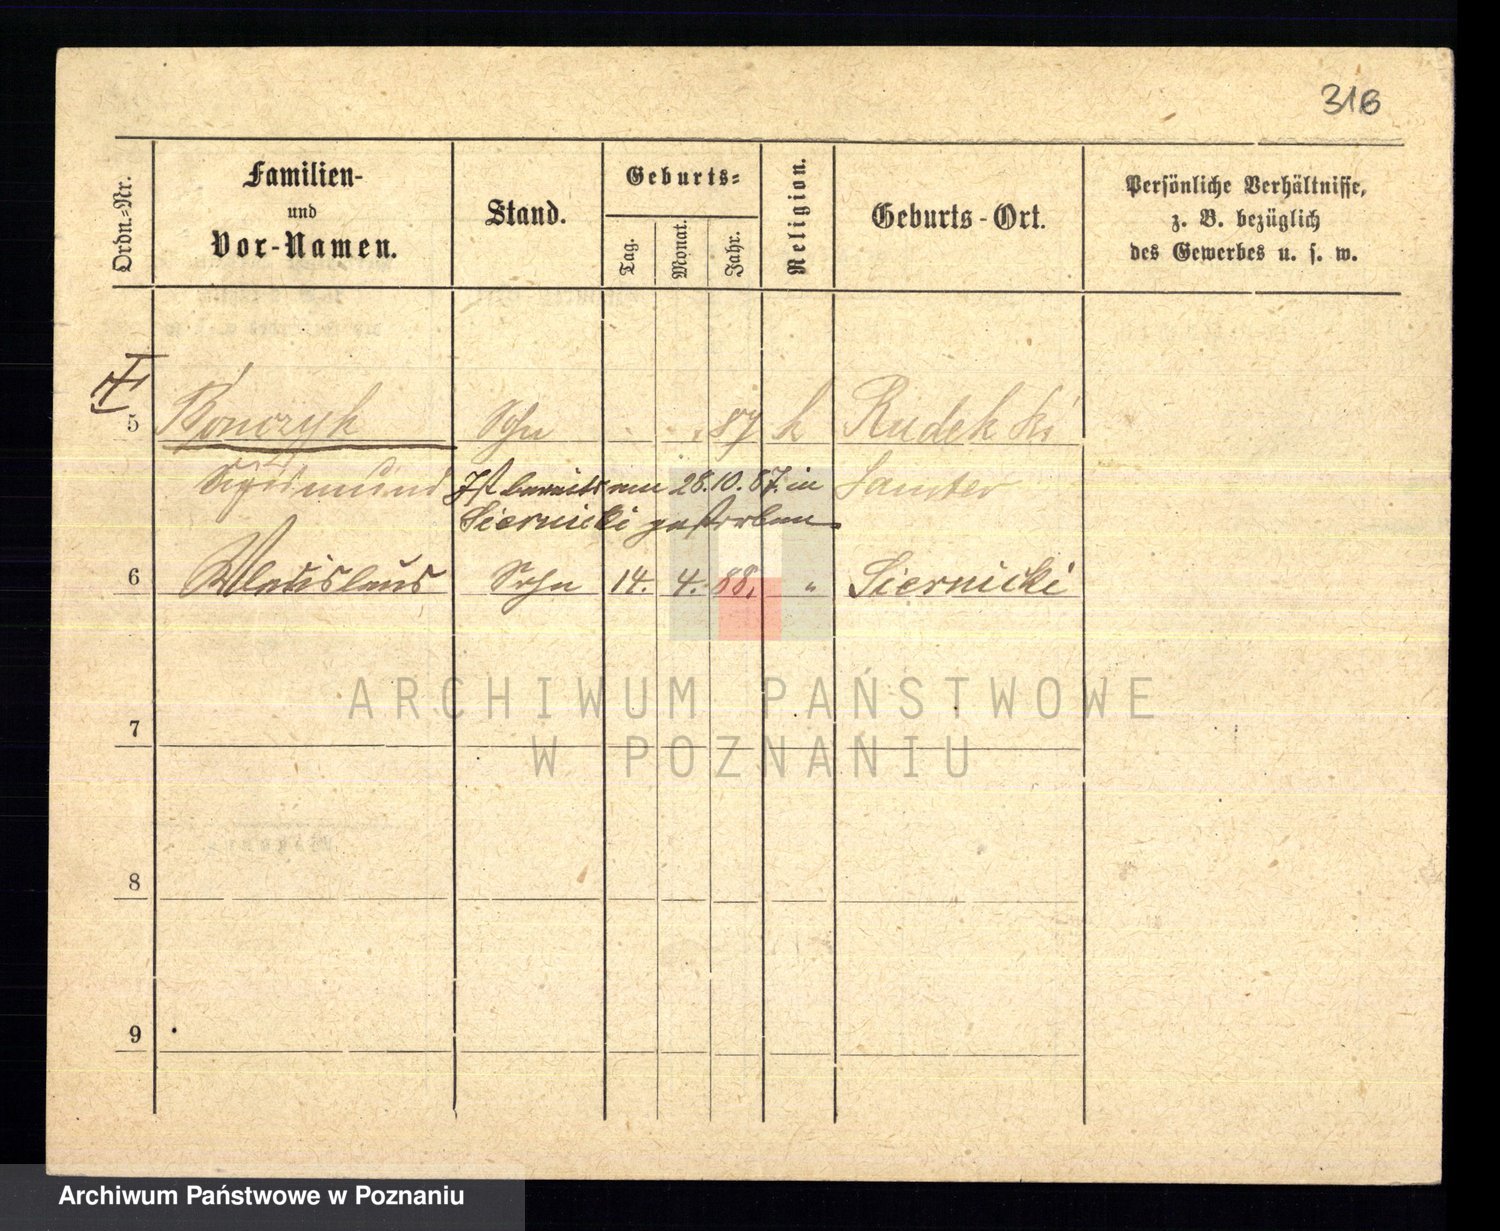 316
Ordn.-Nr.
Familien-
und
Vor-Namen.
Stand.
Geburts-
Tag.
Monat.
Jahr.
Religion.
Geburts-Ort.
Persönliche Verhältnisse,
z. B. bezüglich
des Gewerbes u. s. w.
5 Sohn 87 k Rudekki
Sigismund Samter
Ist bereits am 28.10.87. in
Siernicki gestorben
6 Wladislaus Sohn 14. 4. 88. " Siernicki
7
8
9
ARCHIWUM PAŃSTWOWE
W POZNANIU
Archiwum Państwowe w Poznaniu